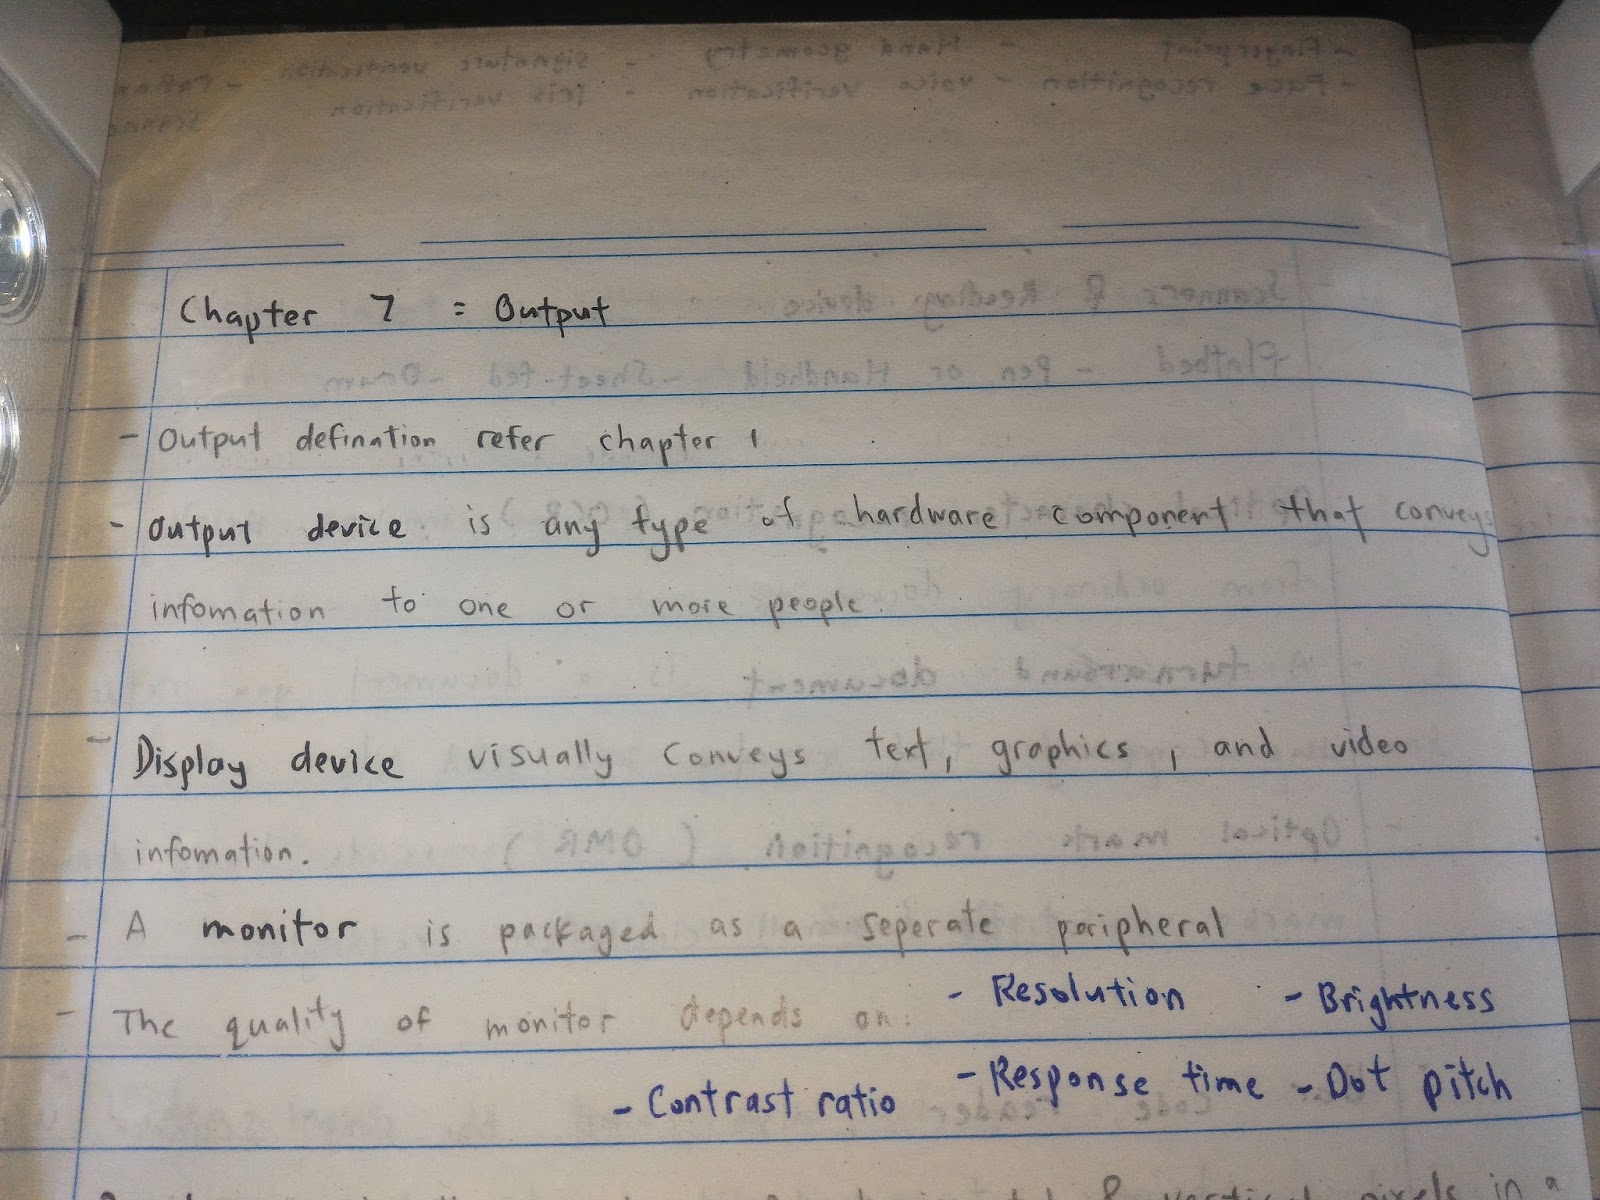 Chapter 7 = Output
- Output defination refer chapter 1
- Output device is any type of hardware component that conveys
infomation to one or more people.
- Display device visually conveys text, graphics, and video
infomation.
- A monitor is packaged as a seperate peripheral
- The quality of monitor depends on: - Resolution - Brightness
- Contrast ratio - Response time - Dot pitch
& vertical pixels in a